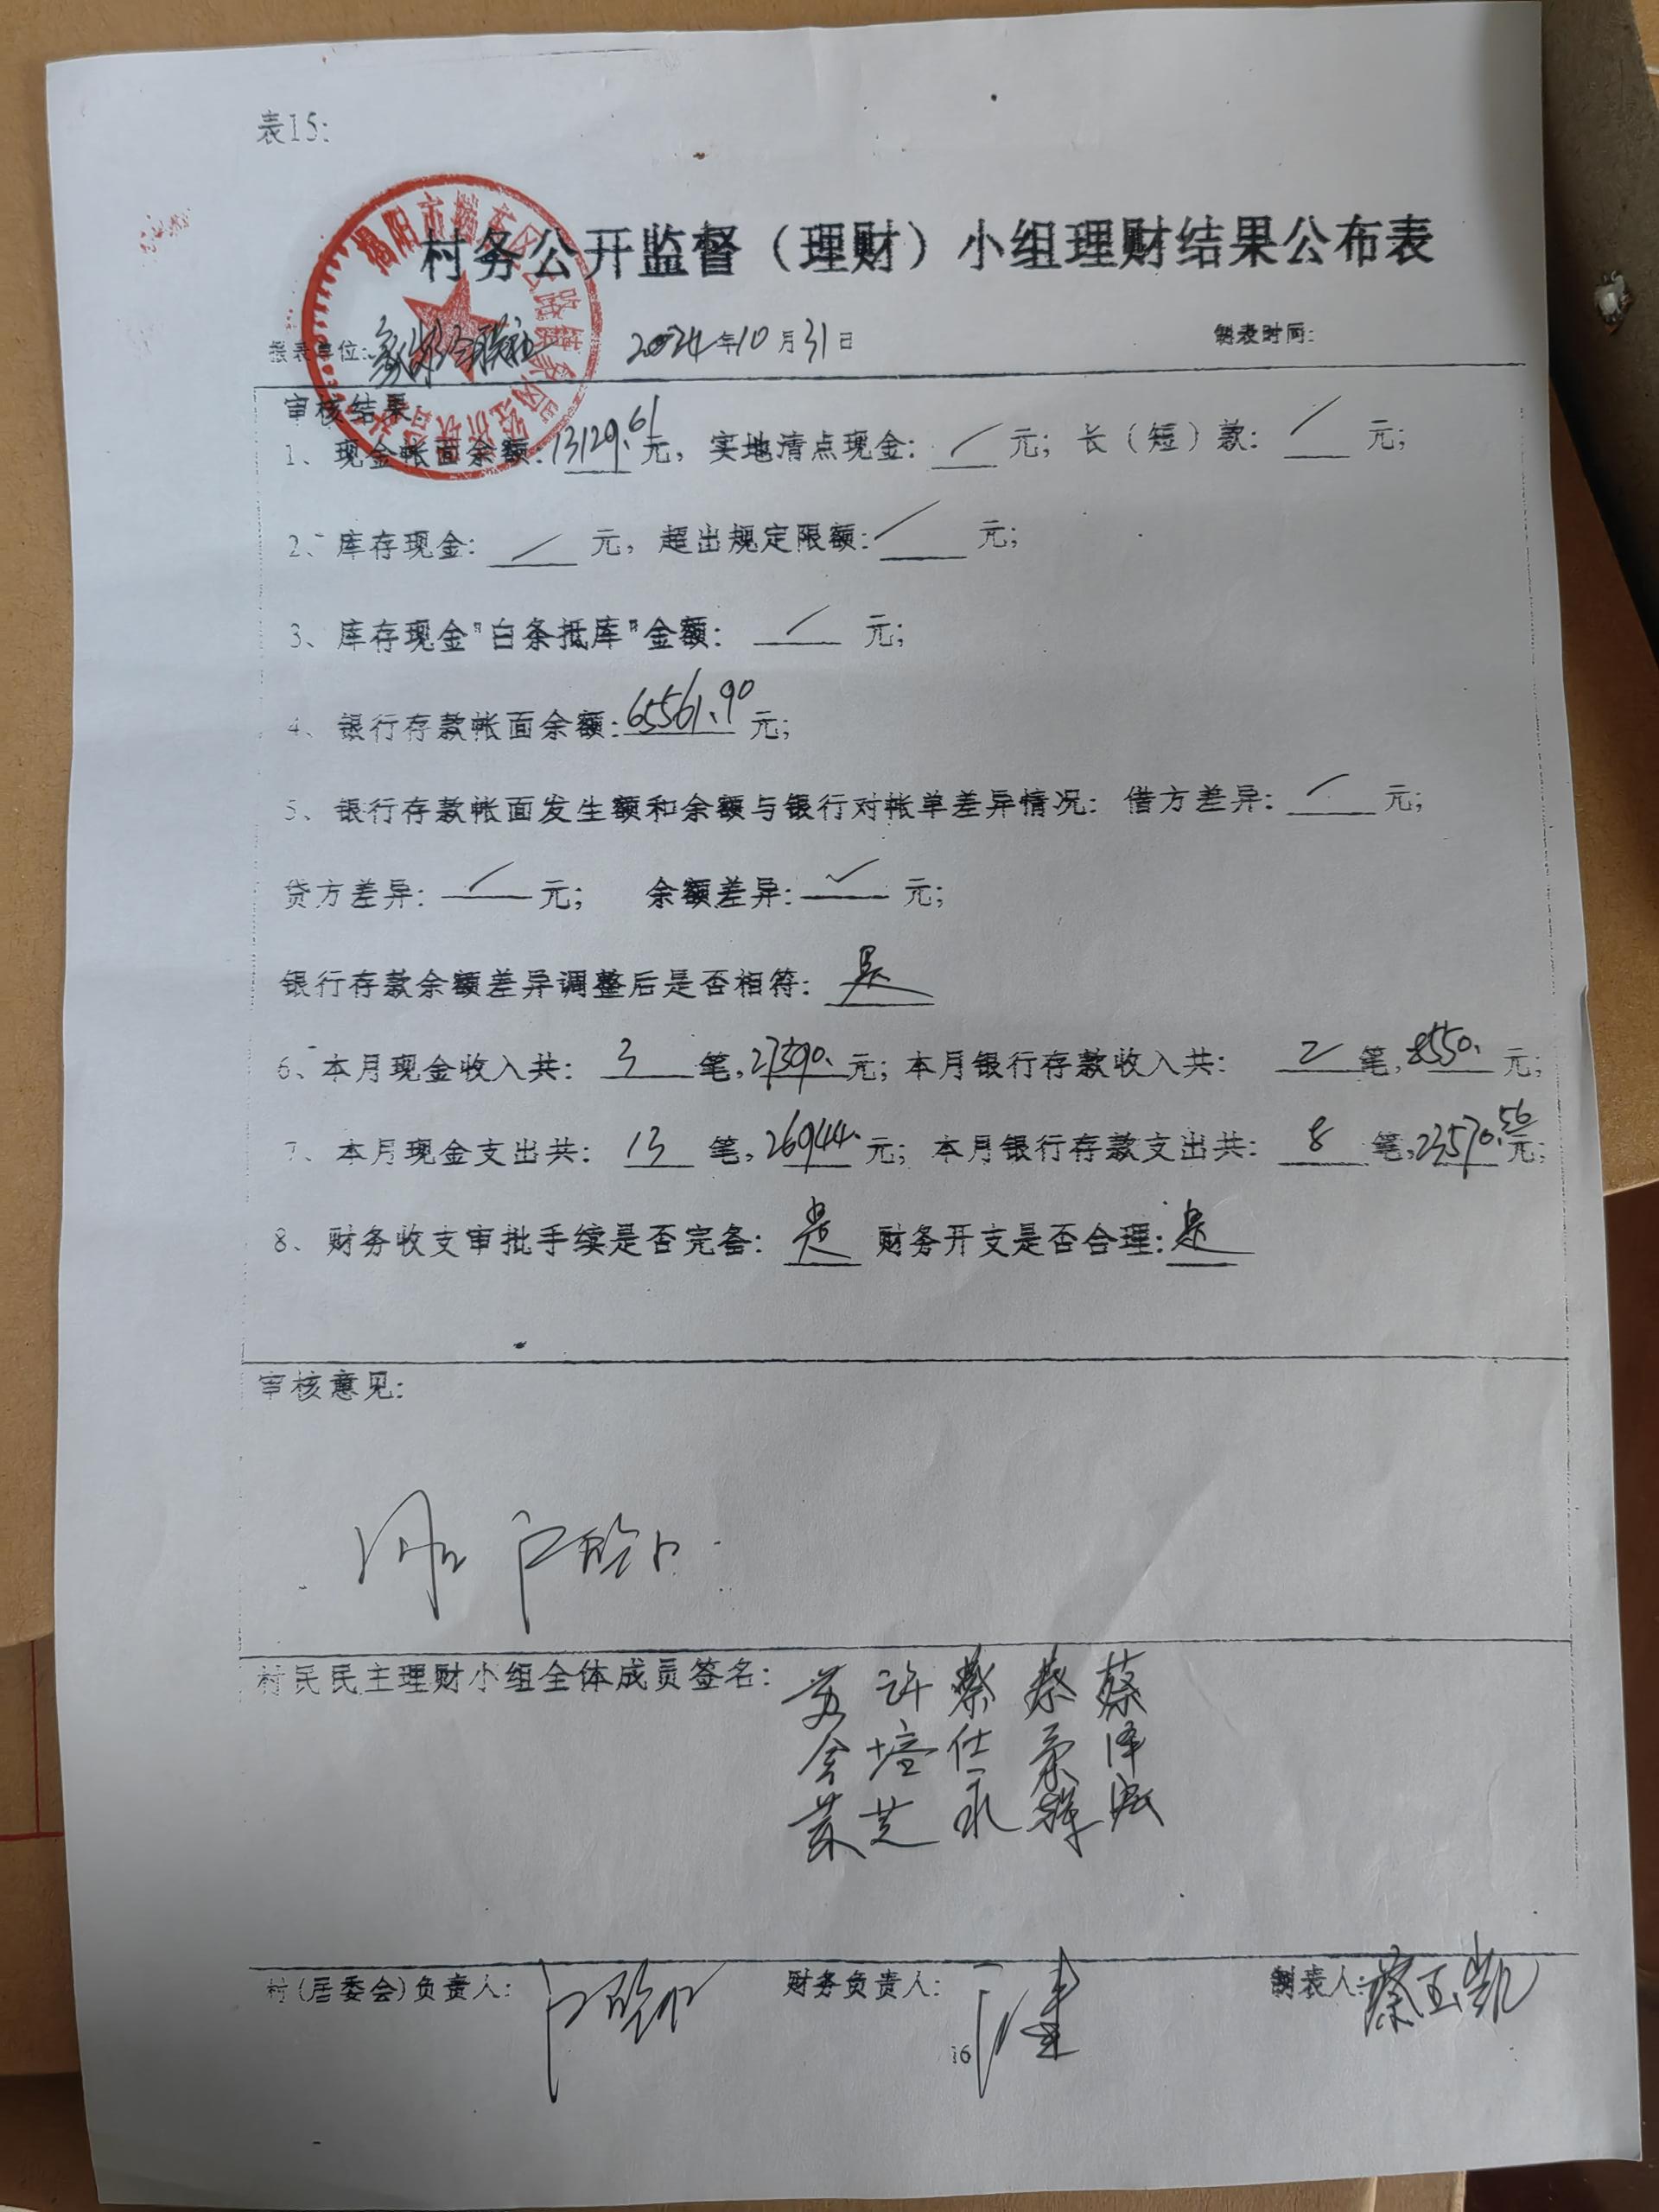 表15:
村务公开监督（理财）小组理财结果公布表
报表单位: 2024年10月31日 制表时间:
审核结果:
1、现金帐面余额:13129.61元，实地清点现金: / 元；长（短）款: / 元；
2、库存现金: / 元，超出规定限额: / 元；
3、库存现金"白条抵库"金额: / 元；
4、银行存款帐面余额:65561.90元；
5、银行存款帐面发生额和余额与银行对帐单差异情况: 借方差异: / 元；
贷方差异: / 元； 余额差异: / 元；
银行存款余额差异调整后是否相符: 是
6、本月现金收入共: 3 笔, 元；本月银行存款收入共: 2 笔,8550.元；
7、本月现金支出共: 13 笔,26944.元；本月银行存款支出共: 8 笔,23570.56元；
8、财务收支审批手续是否完备: 是 财务开支是否合理:是
审核意见:
村民民主理财小组全体成员签名: 许培芝 蔡仕永 蔡泽
村(居委会)负责人: 财务负责人: 制表人:蔡玉凯
16